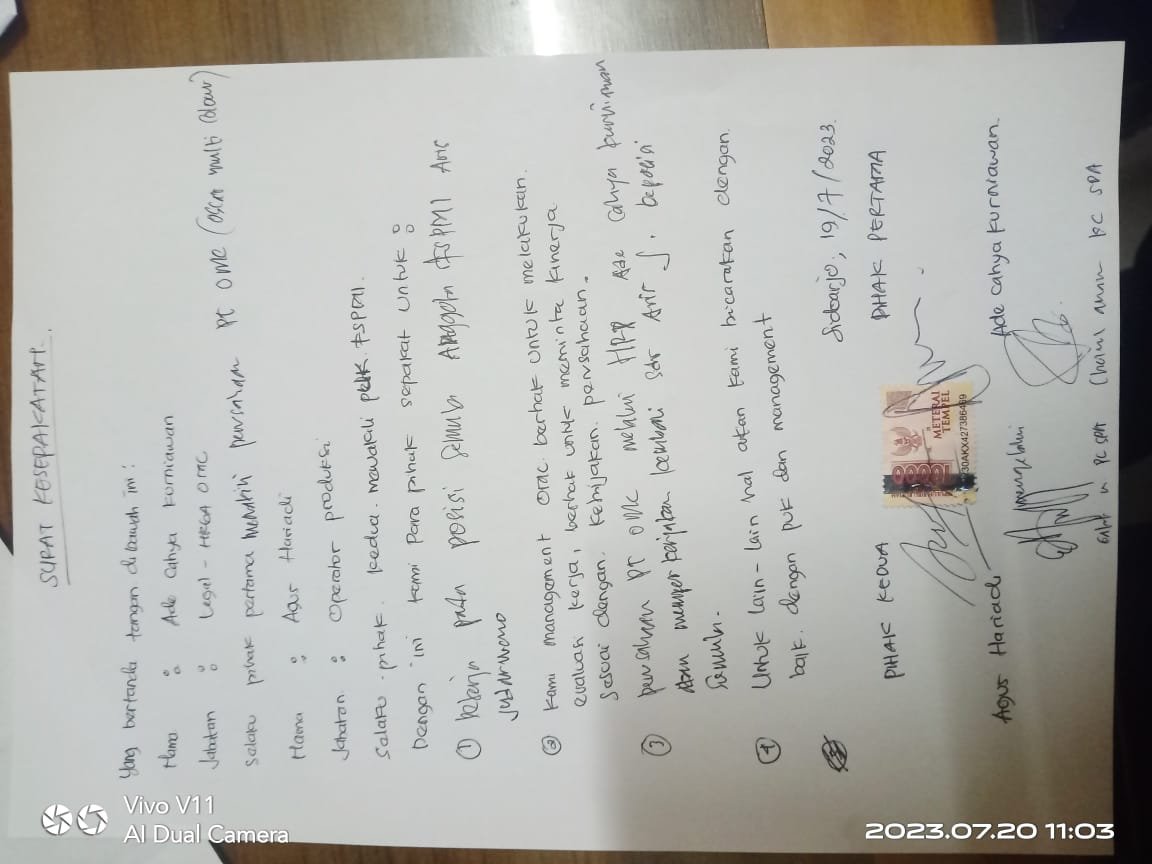 SURAT KESEPAKATAN.
Yang bertanda tangan dibawah ini :
Nama : Ade Cahya Kurniawan
Jabatan : Legal - HRGA OMC
Selaku pihak pertama mewakili perusahaan PT OMC (ascen multi colour)
Nama : Agus Hariadi
Jabatan : Operator produksi
Selaku pihak kedua mewakili PUK FSPMI.
Dengan ini kami para pihak sepakat untuk :
① bekerja pada posisi semula Anggota FSPMI Aric
② Kami management OMC berhak untuk melakukan.
evaluasi kerja, berhak untuk meminta kinerja
sesuai dengan. kebijakan. perusahaan.
③ perusahaan PT OMC melalui HRD Ade Cahya Kurniawan
akan kembali Sdr
Semula.
④ Untuk lain-lain hal akan kami bicarakan dengan
baik. dengan PUK dan management
Sidoarjo, 19/7/2023.
PIHAK KEDUA PIHAK PERTAMA
METERAI
TEMPEL
Agus Hariadi Ade Cahya Kurniawan.
mengetahui
PC SPA
Vivo V11
AI Dual Camera
2023.07.20 11:03